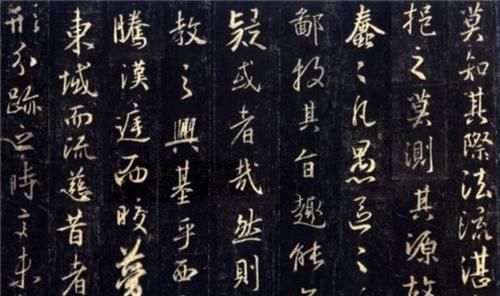 莫知其際法流湛
挹之莫測其源故
蠢々凡愚區々
鄙投其旨趣能
疑或者哉然則
教之興基乎西
騰漢庭而皎夢
東域而流慈昔者
形分跡之時言未